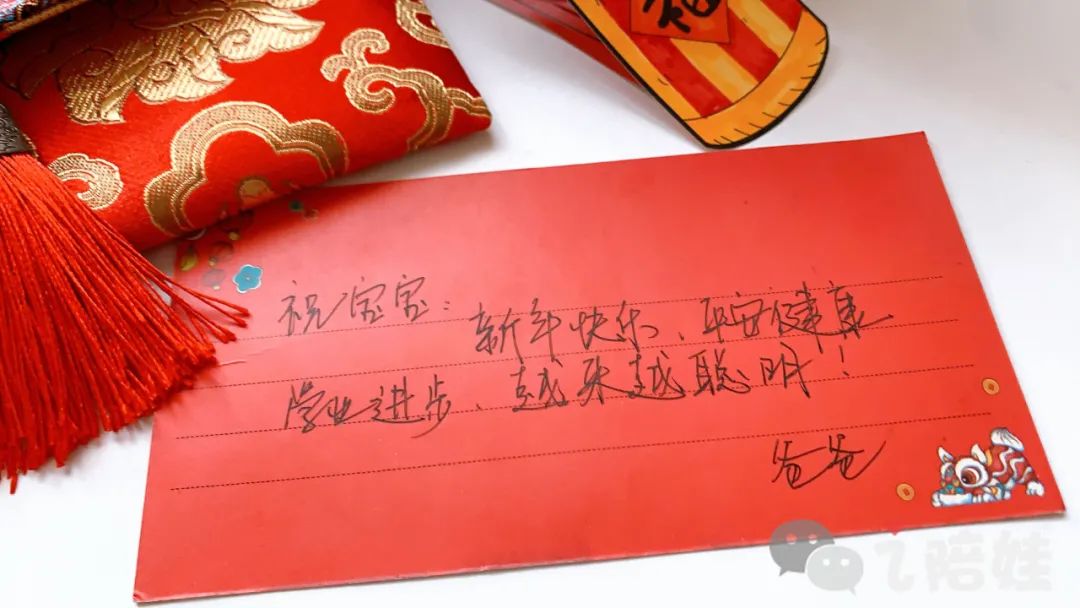 福
祝宝宝：
新年快乐、平安健康
学业进步、越来越聪明！
爸爸
飞陪娃